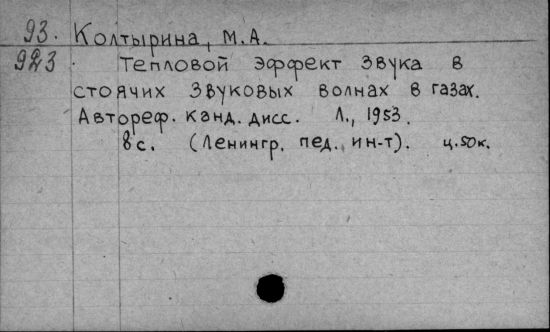 93. Колтырина, М.А.
923. Тепловой эффект звука в
стоячих звуковых волнах в газах.
Автореф. канд. дисс. Л., 1953.
8 с. (Ленингр. пед. ин-т). ц. 50к.